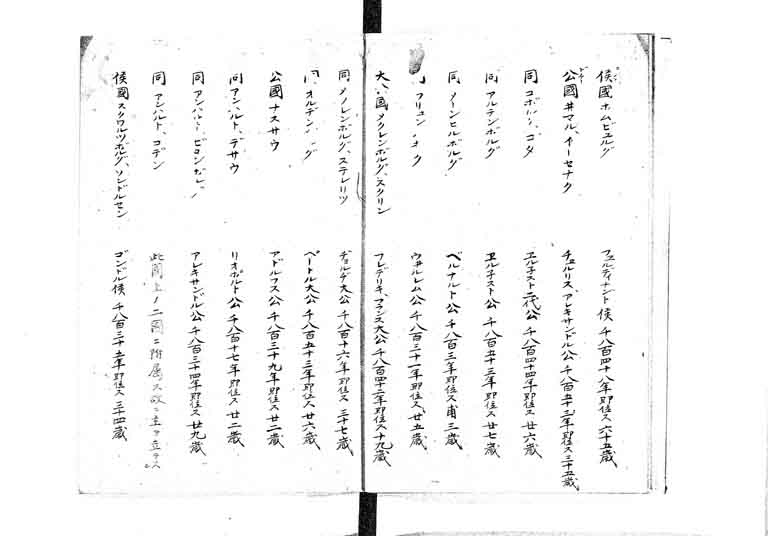 侯國 ホムビュルグ フェルディナント侯 千八百四十八年即位ス 六十五歳
公國 ヰマル、イーセナク チュルリス、アレキサンドル公 千八百五十三年即位ス 三十五歳
同 コボ ゴタ エルネスト二代公 千八百四十四年即位ス 廿六歳
同 アルテンボルグ ヱルネスト公 千八百五十三年即位ス 廿七歳
同 メーンヒルボルグ ベルナルト公 千八百三年即位ス 甫三歳
フリュン ウヰルレム公 千八百三十一年即位ス 廿五歳
大公国 メクレンボルグ、スクリン フレデリキ、フランス大公 千八百四十二年即位ス 十九歳
同 メクレンボルグ、ステレリツ ヂョルヂ大公 千八百十六年即位ス 三十七歳
同 オルデン グ ペートル大公 千八百五十三年即位ス 廿六歳
公國 ナスサウ アドルフス公 千八百三十九年即位ス 廿二歳
同 アンハルト、デサウ リオポルト公 千八百十七年即位ス 廿二歳
同 アンハルト ビコン アレキサンドル公 千八百三十四年即位ス 廿九歳
同 アンハルト、コデン 此國上ノ二國ニ附属ス故ニ主ヲ立テス
侯國 スクワルツボルグ、ソンドルセン ゴンドル侯 千八百三十五年即位ス 三十四歳